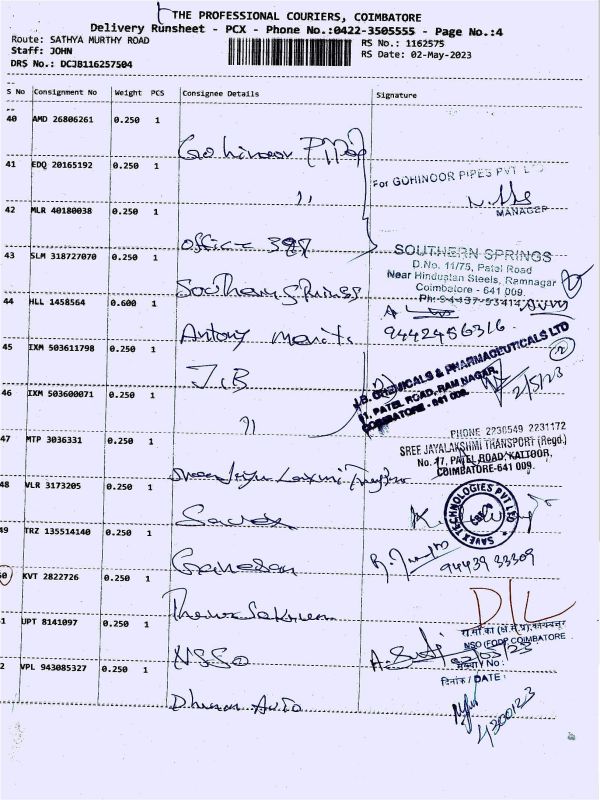 THE PROFESSIONAL COURIERS, COIMBATORE
Delivery Runsheet - PCX - Phone No.:0422-3505555 - Page No.:4
Route: SATHYA MURTHY ROAD
RS No.: 1162575
Staff: JOHN
RS Date: 02-May-2023
DRS No.: DCJB116257504
S No Consignment No Weight PCS Consignee Details Signature
40 AMD 26806261 0.250 1
Gohinoor Pipes
41 EDQ 20165192 0.250 1
For GOHINOOR PIPES PVT LTD
MANAGER
42 MLR 40180038 0.250 1
office
43 SLM 318727070 0.250 1
SOUTHERN SPRINGS
D.No. 11/75, Patel Road
Near Hindustan Steels, Ramnagar
Coimbatore - 641 009.
Ph: 94437-93414
Southern Springs
44 HLL 1458564 0.600 1
Antony
9442486316
45 IXM 503611798 0.250 1
J.B
J.B. CHEMICALS & PHARMACEUTICALS LTD
PATEL ROAD, RAM NAGAR,
COIMBATORE - 641 009.
2/5/23
46 IXM 503600071 0.250 1
47 MTP 3036331 0.250 1
PHONE 2230549 2231172
SREE JAYALAKSHMI TRANSPORT (Regd.)
No. 17, PATEL ROAD, KATTOOR,
COIMBATORE-641 009.
48 VLR 3173205 0.250 1
Savex
SAVEX TECHNOLOGIES PVT LTD
49 TRZ 135514140 0.250 1
Ganesan
94439 33309
50 KVT 2822726 0.250 1
D/L
1 UPT 8141097 0.250 1
NSSO
NSO (FODP COIMBATORE
संख्या / No :
2 VPL 943085327 0.250 1
दिनांक / DATE :
Auto